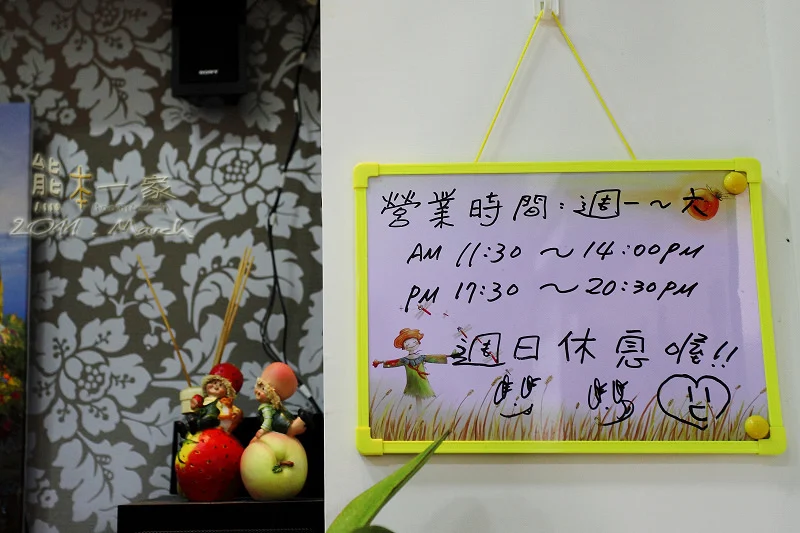 SONY
熊本一家
2011 . March
營業時間:週一~六
AM 11:30 ~ 14:00PM
PM 17:30 ~ 20:30PM
週日休息喔!!